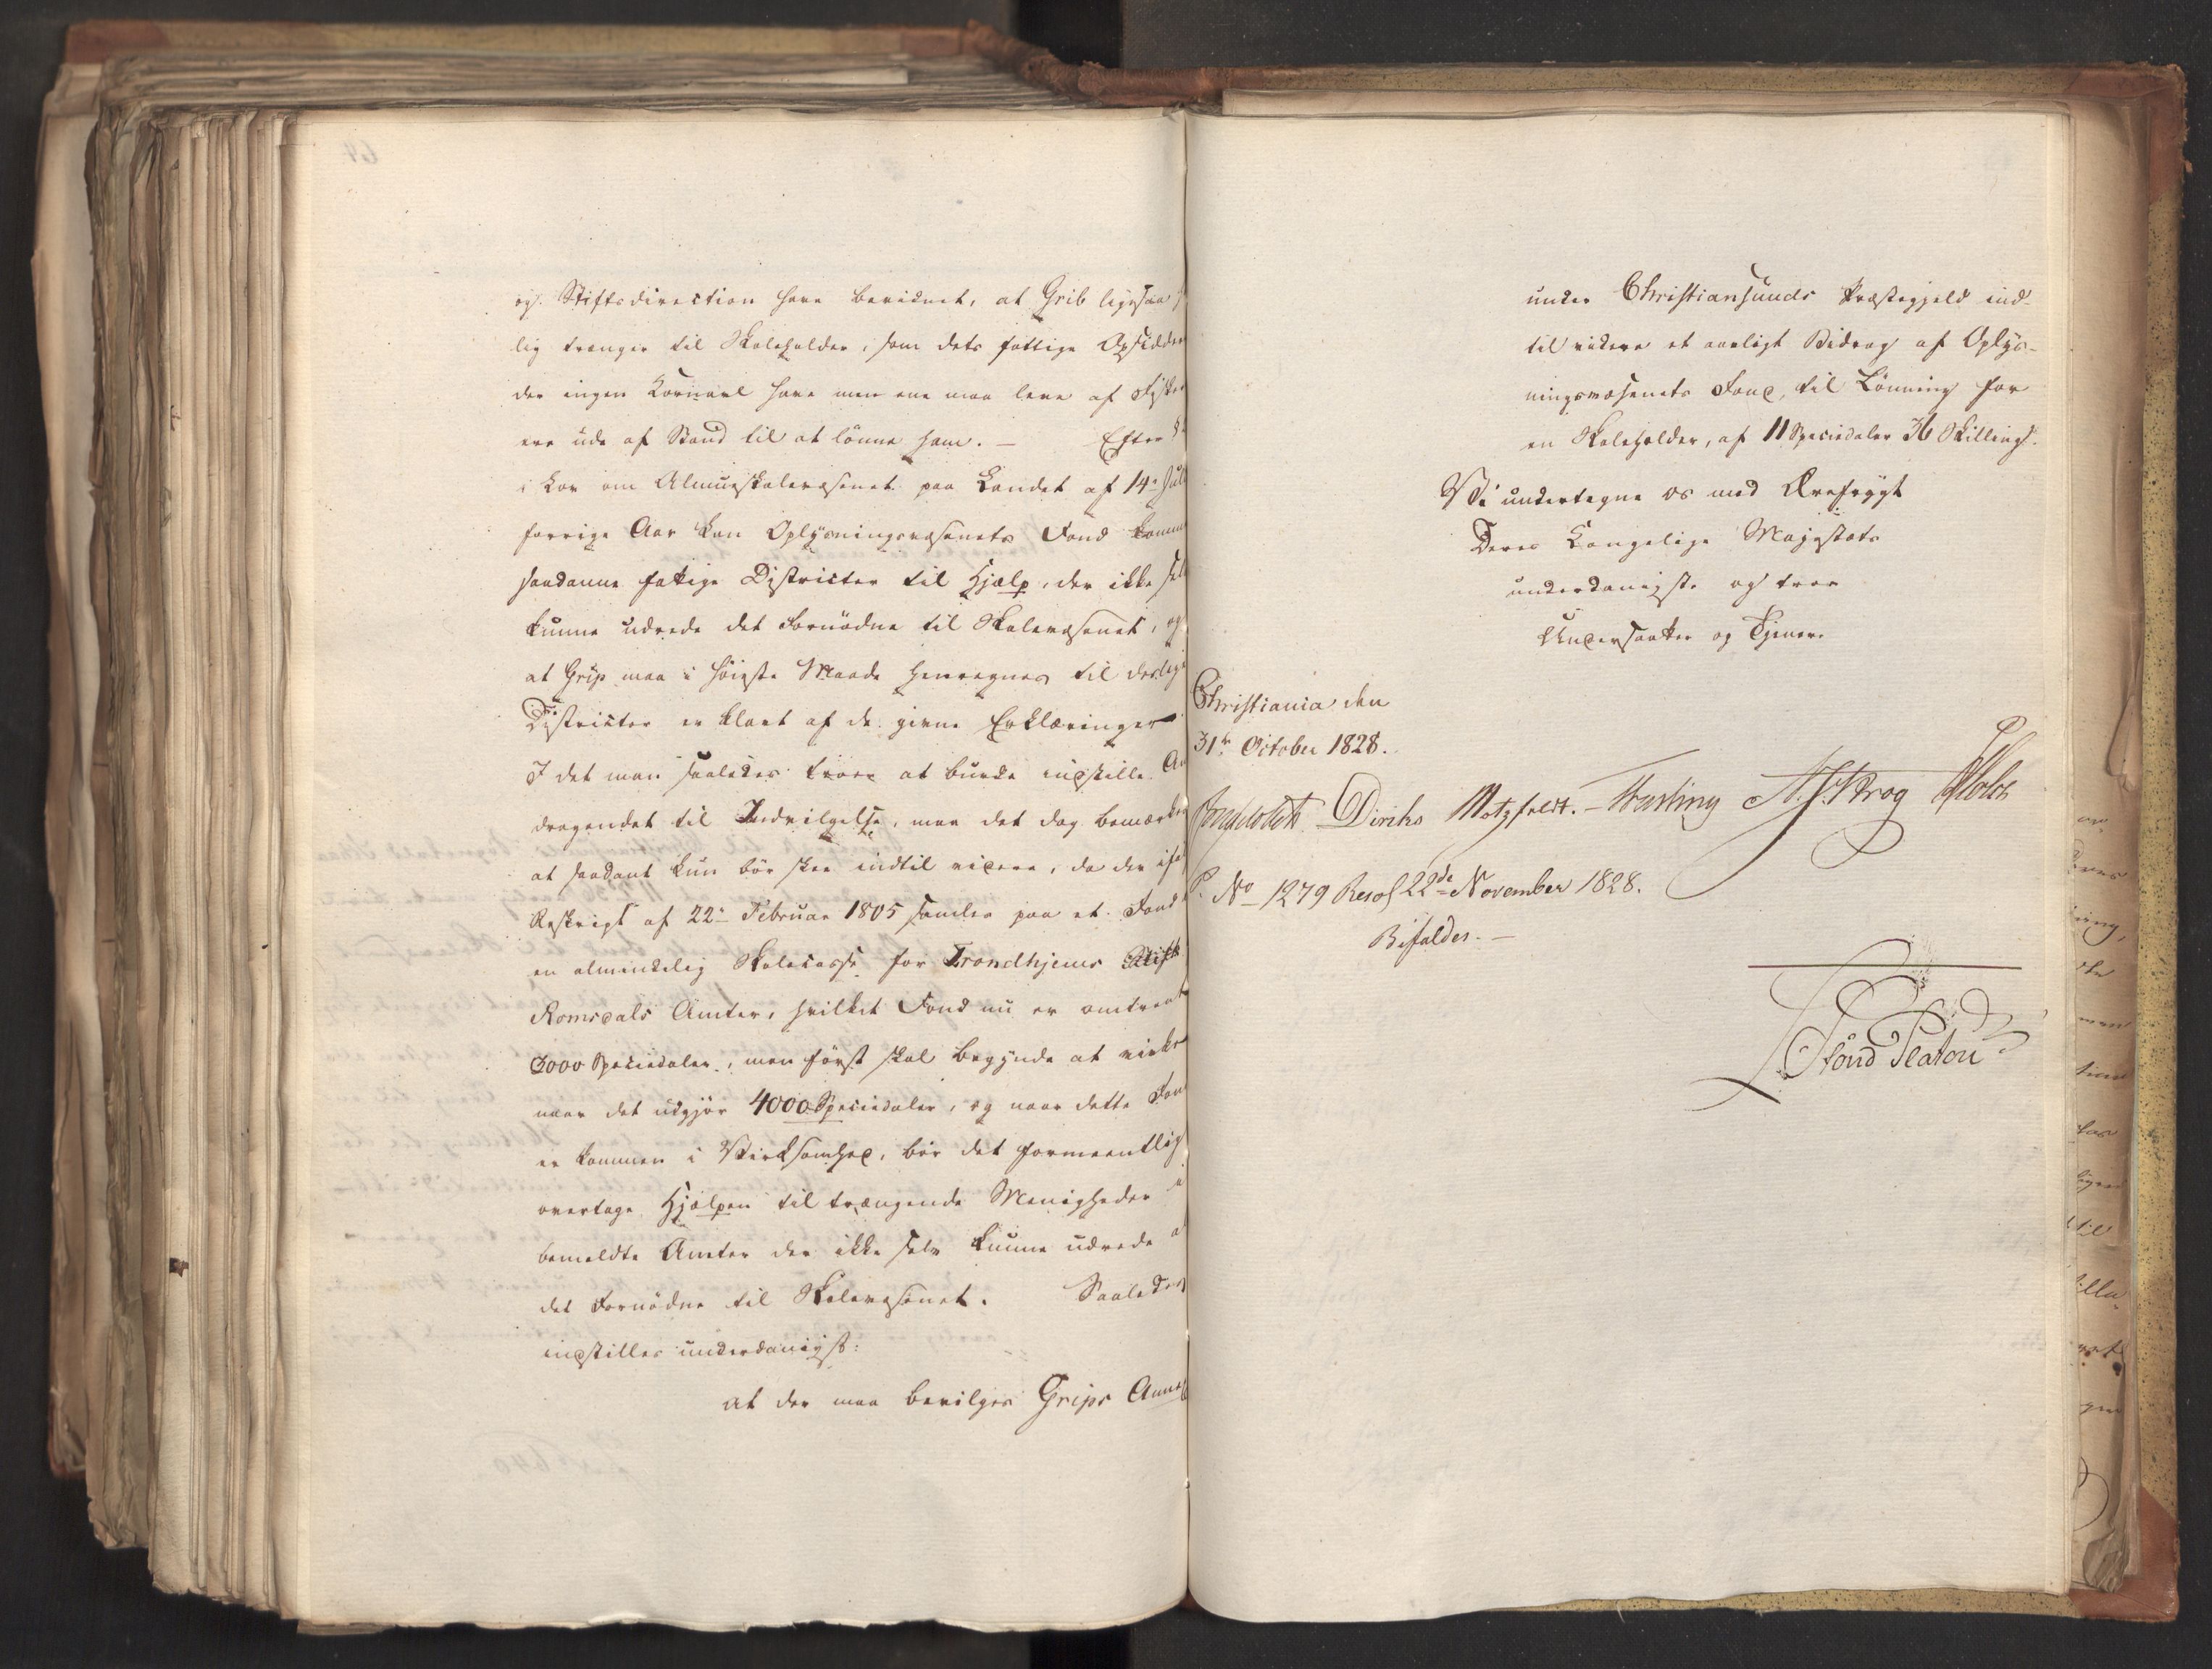 og Stiftsdirection have bevidnet, at Grib ligesaa
lig trænger til Skoleholder, som dets fattige Opsiddere
der ingen Kornavl have men ene maa leve af Fisker
ere ude af Stand til at lönne ham. — Efter §
i Lov om Almueskolevæsenet paa Landet af 14de Juli
forrige Aar kan Oplysningsvæsenets Fond komme
saadanne fattige Districter til Hjælp, der ikke selv
kunne udrede det Fornödne til Skolevæsenet, og
at Grip maa i höieste Maade henregnes til deslige
Districter er klart af de givne Erklæringer
I det man saaledes troer at burde indstille An
dragendet til Indvilgelse, maa det dog bemærkes
at saadant kun bör skee indtil videre, da der ifø
Reskript af 22de Februar 1805 samles paa et Fond
en almindelig Skolecasse for Trondhjems Stift
Romsdals Amter, hvilket Fond nu er omtrent
3000 Speciedaler, men först skal begynde at virke
naar det udgjör 4000 Speciedaler, og naar dette Fon
er kommen i Virksomhed, bör det formeentlig
overtage Hjælpen til trængende Menigheder i
bemeldte Amter der ikke selv kunne udrede a
det Fornödne til Skolevæsenet. Saaledes
indstilles underdanigst:
at der maa bevilges Grips Annex
under Christiansunds Præstegjeld ind-
til videre et aarligt Bidrag af Oplys-
ningsvæsenets Fond, til Lönning for
en Skoleholder, af 11 Speciedaler 36 Skilling.
Vi undertegne os med Ærefrygt
Deres Kongelige Majestæts
underdanigste og troe
Undersaatter og Tjenere
Christiania den
31te October 1828.
Diriks Motzfeldt. Treschow Krog Holst
P. No 1279 Resol 22de November 1828.
Bifaldes. —
Frönd Platou